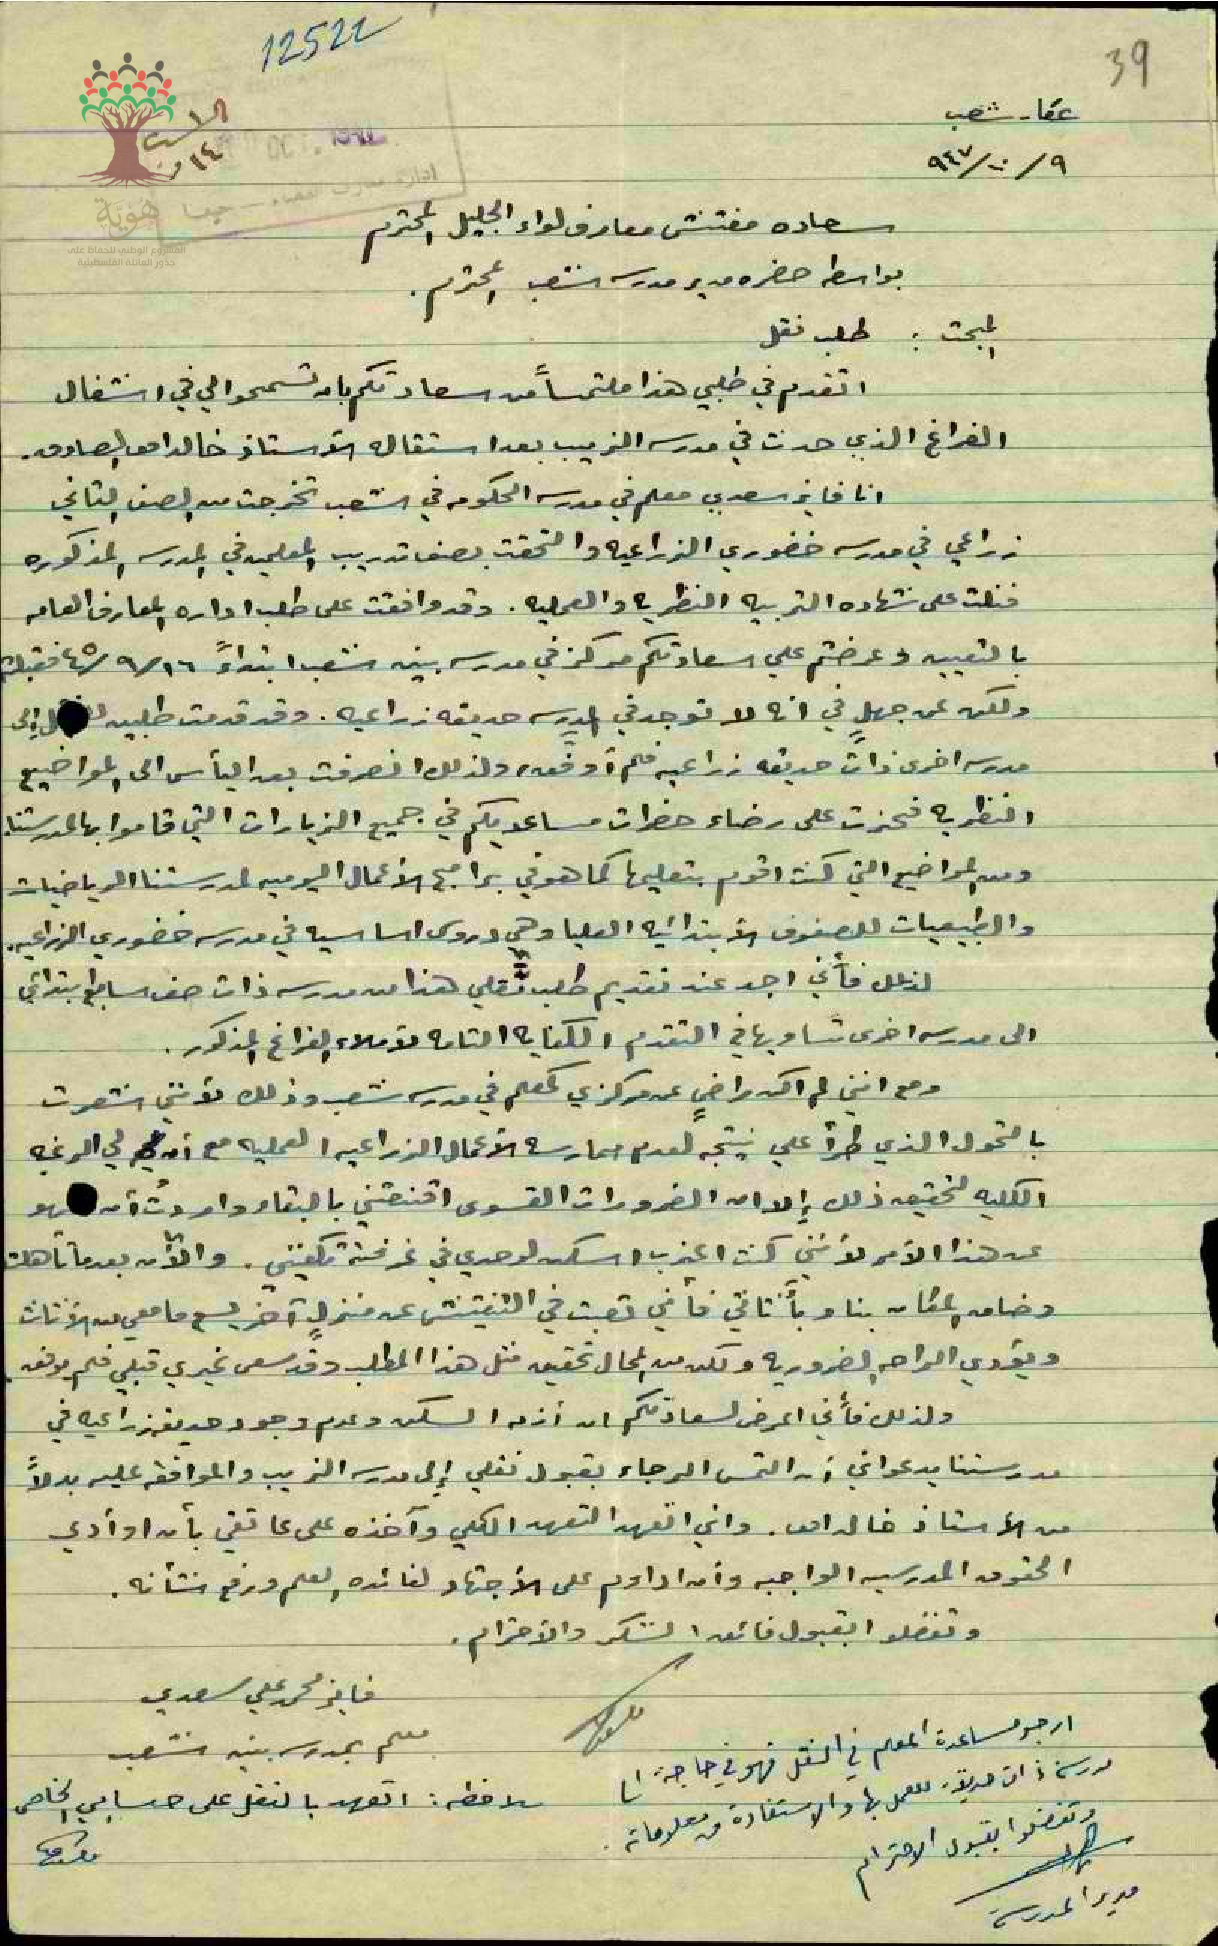 12522
39
عكا - شعب
٩/١٠/٩٤٧
OCT. 1947
ادارة معارف القضاء - حيفا
هوية
المشروع الوطني للحفاظ على
جذور العائلة الفلسطينية
سعاده مفتش معارف لواء الجليل المحترم
بواسطة حضره مدير مدرسه شعب المحترم.
المبحث : طلب نقل
اتقدم في طلبي هذا ملتمساً من سعادتكم بان تسمحوا لي في اشغال
الفراغ الذي حدث في مدرسه الزيب بعد استقاله الأستاذ خالد الصادق.
انا فايز سعدي معلم في مدرسه الحكومه في شعب تخرجت من الصف الثاني
زراعي في مدرسه خضوري الزراعيه والتحقت بصف تدريب المعلمين في المدرسه المذكوره
فنلت على شهاده التربيه النظريه والعمليه. وقد وافقت على طلب اداره المعارف العامه
بالتعيين وعرضتم علي سعادتكم مركز في مدرسه بنين شعب ابتداءً ١٦/٩/٤٥ فقبلت
ولكن عن جهلٍ في انه لا توجد في المدرسه حديقه زراعيه. وقد قدمت طلبين إلى
مدرسه اخرى ذات حديقه زراعيه فلم أوفّق، ولذلك انصرفت بعد اليأس الى المواضيع
النظريه فحزت على رضاء حضرات مساعديكم في جميع الزيارات التي قاموا بها لمدرستنا
ومن المواضيع التي كنت اقوم بتعليمها كما هو في برامج الأعمال اليوميه لمدرستنا الرياضيات
والطبيعيات للصفوف الأبتدائيه العليا وهي دروس اساسيه في مدرسه خضوري الزراعيه.
لذلك فأني اجد عند تقديم طلب نقلي هذا من مدرسه ذات صف سابع ابتدائي
الى مدرسه اخرى تساويها في التقدم الكفايه التامه لأملاء الفراغ المذكور.
ومع انني لم اكن راضٍ عن مركزي كمعلم في مدرسه شعب وذلك لأنني شعرت
بالتحول الذي طرأ علي نتيجه لعدم ممارسه الأعمال الزراعيه العمليه مع أن لي الرغبه
الكليه لتحقيق ذلك إلا ان الضرورات القصوى اقنعتني بالبقاء واردتُ أن
عن هذا الأمر لأنني كنت اعزب اسكن لوحدي في غرفة تكفيني. والآن بعد ما تأهلت
وضاق المكان بنا وبأثاثي فأني تعبت في التفتيش عن منزلٍ آخر يسع ما معي من الأثاث
ويؤدي الراحه الضروريه ولكن من المحال تحقيق مثل هذا المطلب وقد سعى غيري قبلي فلم يوفق.
ولذلك فأني اعرض لسعادتكم ان أزمه السكن وعدم وجود حديقه زراعيه في
مدرستنا يدعواني أن التمس الرجاء بقبول نقلي إلى مدرسه الزيب والموافقه عليه بدلاً
من الأستاذ خالد. واني اتعهد التعهد الكلي وآخذه على عاتقي بأن اوأدي
الحقوق المدرسيه الواجبه وأن اداوم على الأجتهاد لفائده العلم ورفع شأنه.
وتفضلوا بقبول فائق الشكر والأحترام.
فايز محمد علي سعدي
معلم بمدرسه بنين شعب
ملاحظه: اتعهد بالنقل على حسابي الخاص
ارجو مساعدة المعلم في النقل فهو في حاجة الى
مدرسة ذات حديقة للعمل بها والاستفادة من معلوماته.
وتفضلوا بقبول الاحترام
مدير المدرسة